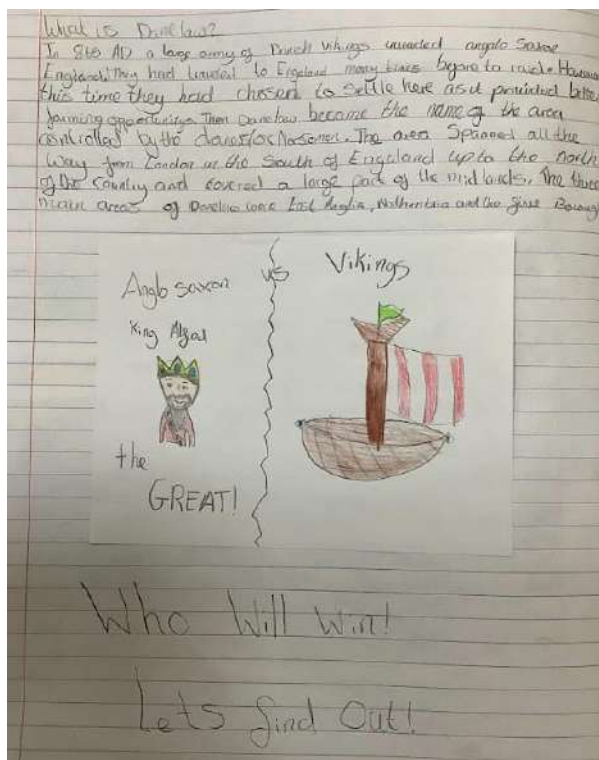 What is Danelaw?
In 865 AD a large army of Danish Vikings invaded anglo Saxon
England. They had traveled to England many times before to raid. However
this time they had chosen to settle here as it provided better
farming opportunitys. Then Danelaw became the name of the area
controlled by the danes/or Norsemen. The area spanned all the
way from London in the South of England up to the north
of the country and covered a large part of the midlands. The three
main areas of Danelaw were East Anglia, Northumbria and the five Boroug
Anglo saxon vs Vikings
King
the
GREAT!
Who Will Win!
Lets find Out!